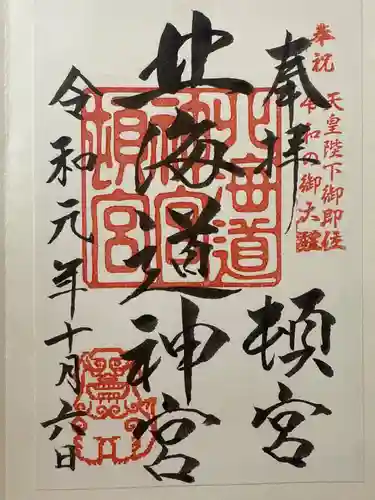 奉祝
天皇陛下御即位
令和の御大礼
奉拝
頓宮
北海道神宮
令和元年十月六日
北海道
神宮
頓宮